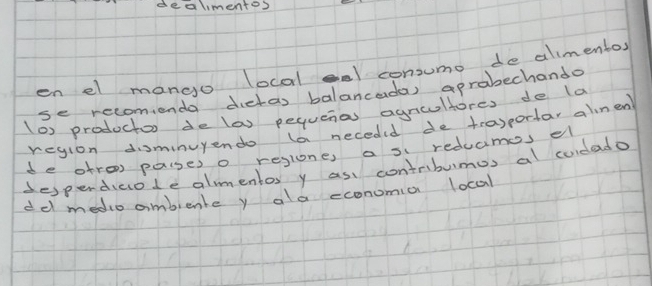 de alimentos
en el manejo local el consumo de alimentos
se recomienda dietas balanceadas aprobechando
los productos de las pequeñas agricultores de la
region disminuyendo la necedid de trasportar alimen
de otros paises o regiones a si reducimos el
desperdicio de alimentos y asi contribuimos al cuidado
del medio ambiente y ala economia local